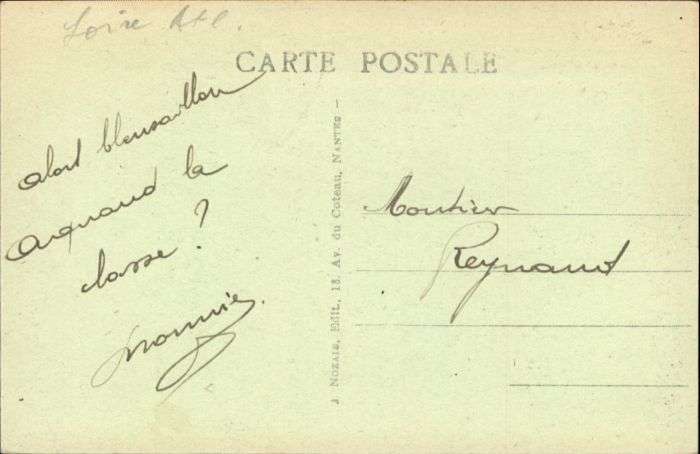 Loire Atl.
CARTE POSTALE
alors bleusaillon
aquand la
classe ?
J. NOZAIS, Edit, 18, Av. du Coteau, NANTES -
Monsieur
Reynaud